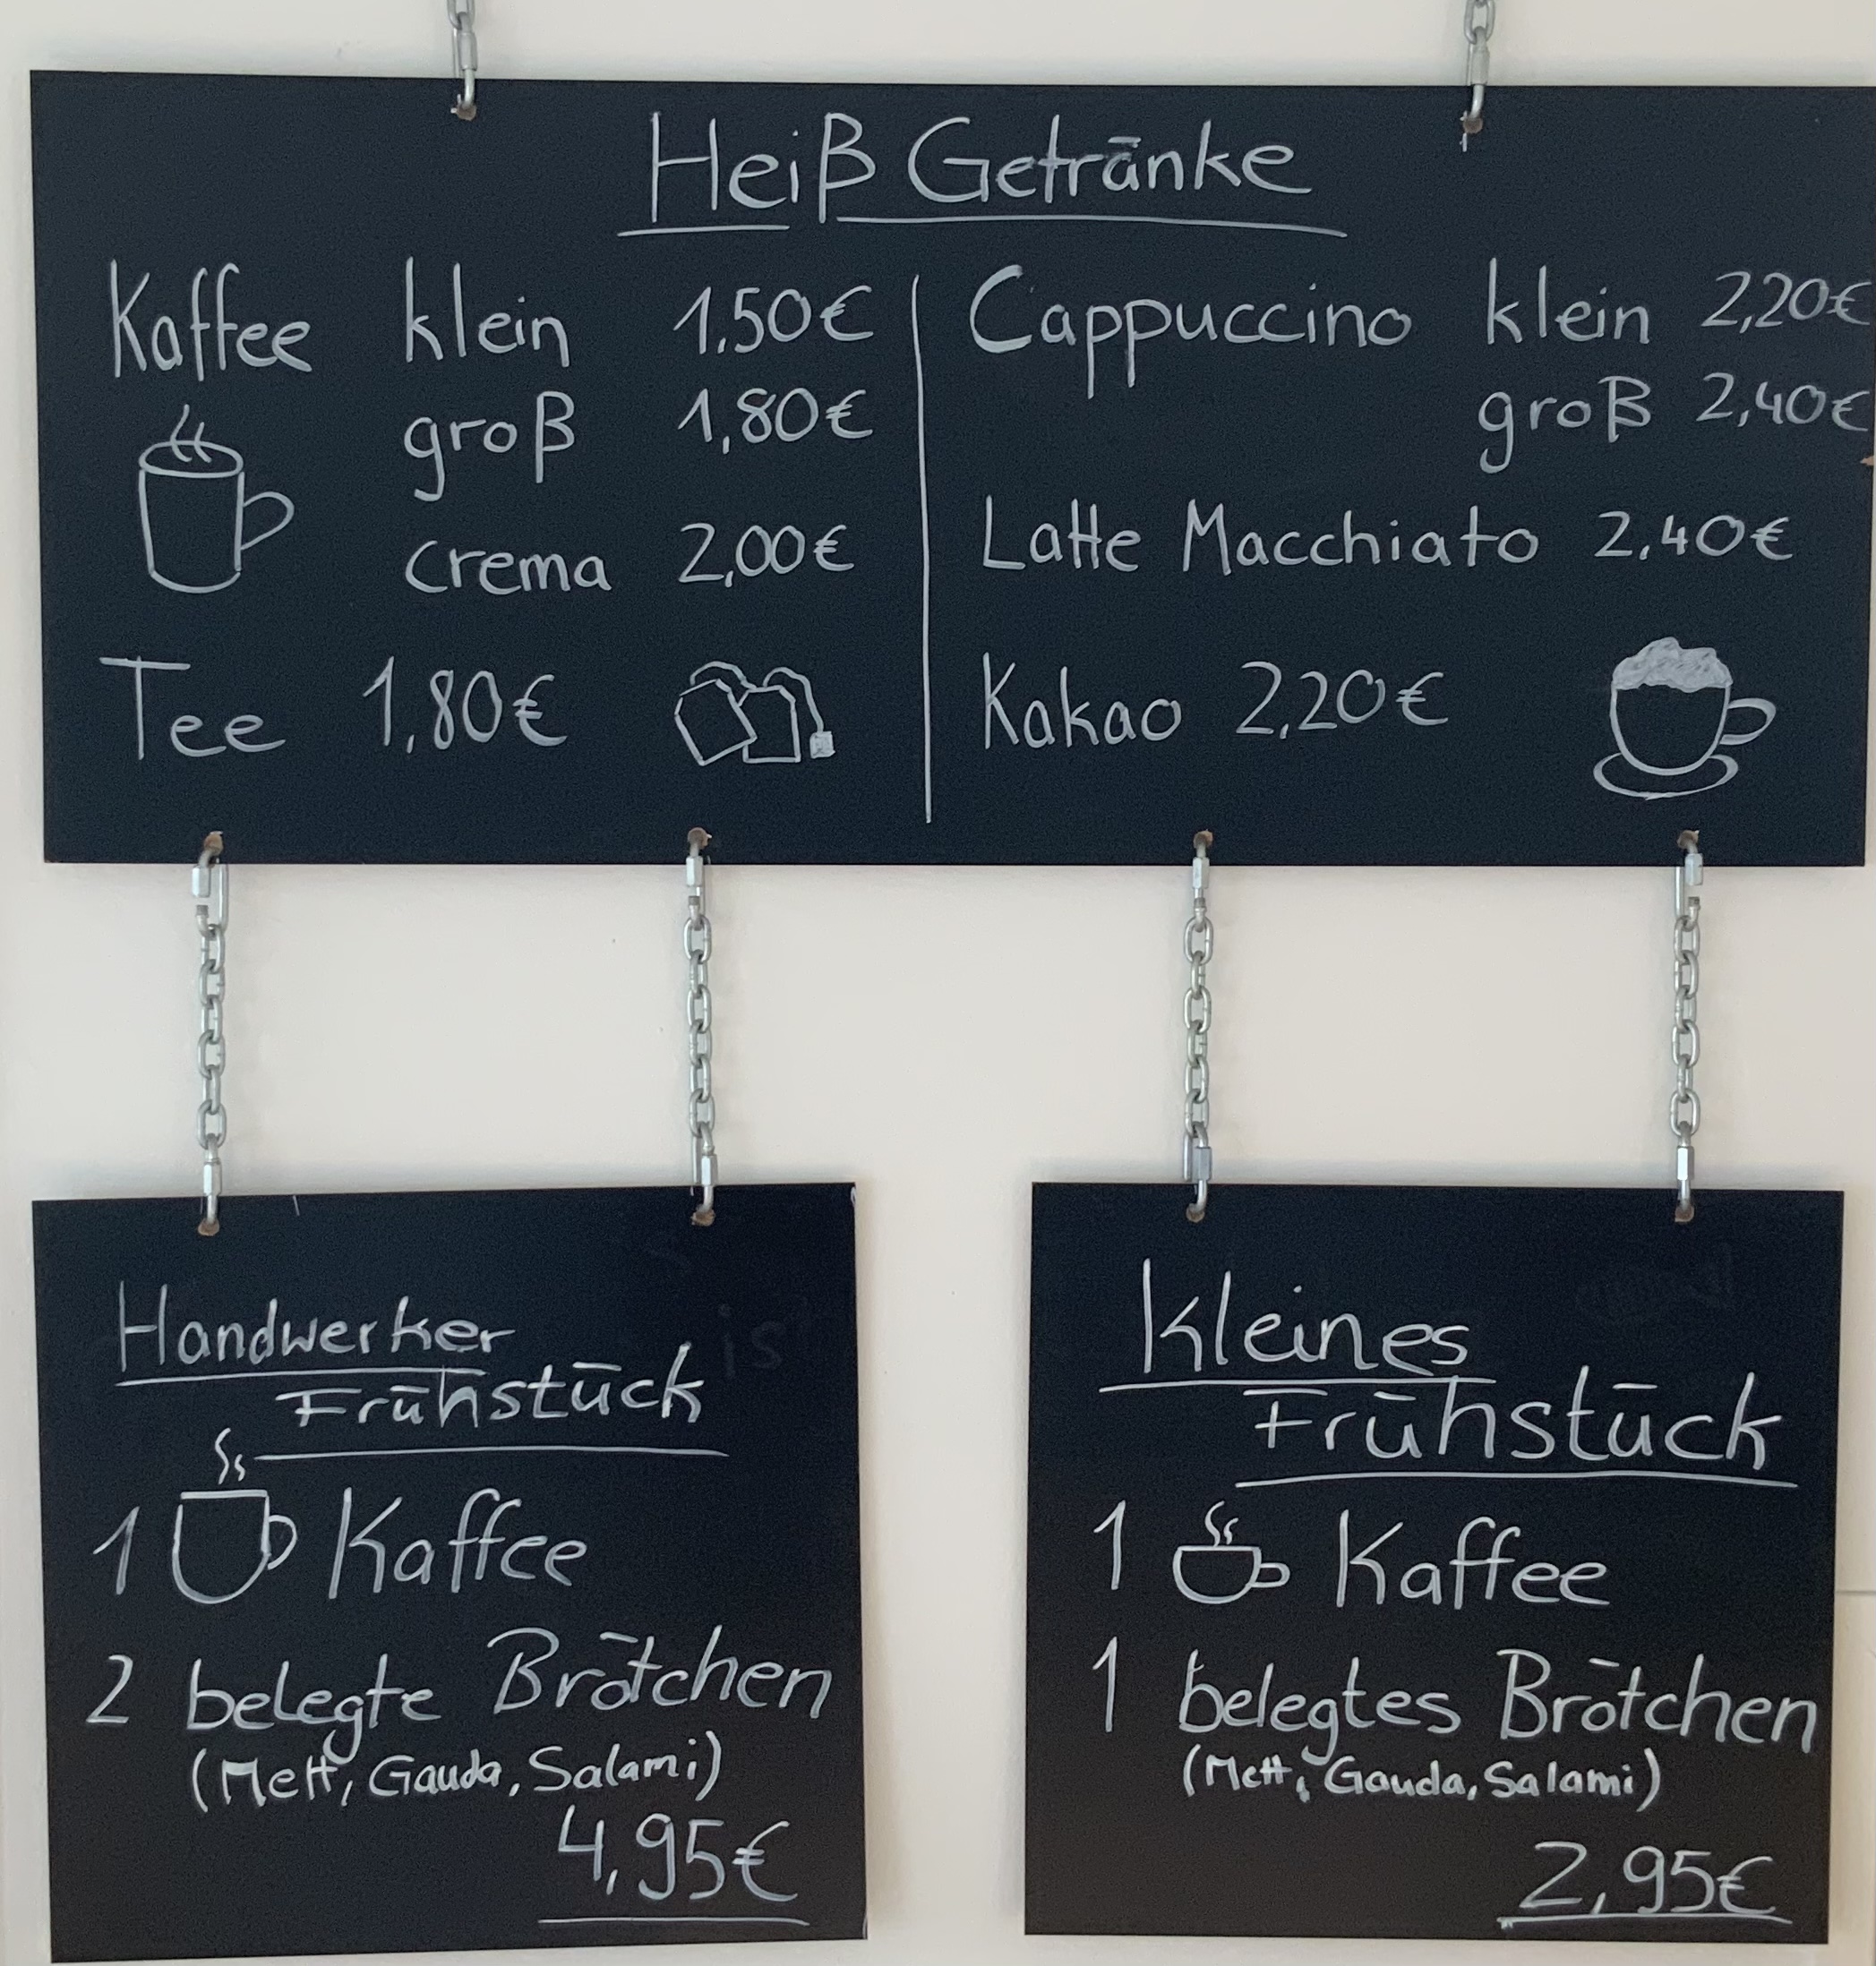 Heiß Getränke
Kaffee klein 1,50€
groß 1,80€
crema 2,00€
Tee 1,80€
Cappuccino klein 2,20€
groß 2,40€
Latte Macchiato 2,40€
Kakao 2,20€
Handwerker
Frühstück
1 Kaffee
2 belegte Brötchen
(Mett, Gauda, Salami)
4,95€
Kleines
Frühstück
1 Kaffee
1 belegtes Brötchen
(Mett, Gauda, Salami)
2,95€